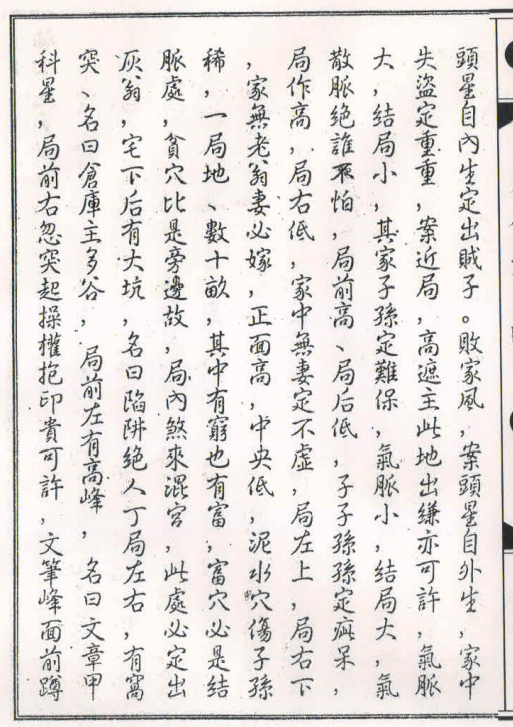 頭星自內生定出賊子。敗家風，案頭星自外生，家中
失盜定重重，案近局，高遮主此地出縑亦可許，氣脈
大，結局小，其家子孫定難保，氣脈小，結局大，氣
散脈絕誰不怕，局前高、局后低，子子孫孫定痴呆，
局作高，局右低，家中無妻定不虛，局左上，局右下
，家無老翁妻必嫁，正面高，中央低，泥水穴傷子孫
稀，一局地、數十畝，其中有窮也有富，富穴必是結
脈處，貧穴比是旁邊故，局內煞來混宮，此處必定出
灰翁，宅下后有大坑，名曰陷阱絕人丁局左右，有窩
突、名曰倉庫主多谷，局前左有高峰，名曰文章甲
科星，局前右忽突起操權抱印貴可許，文筆峰面前蹲